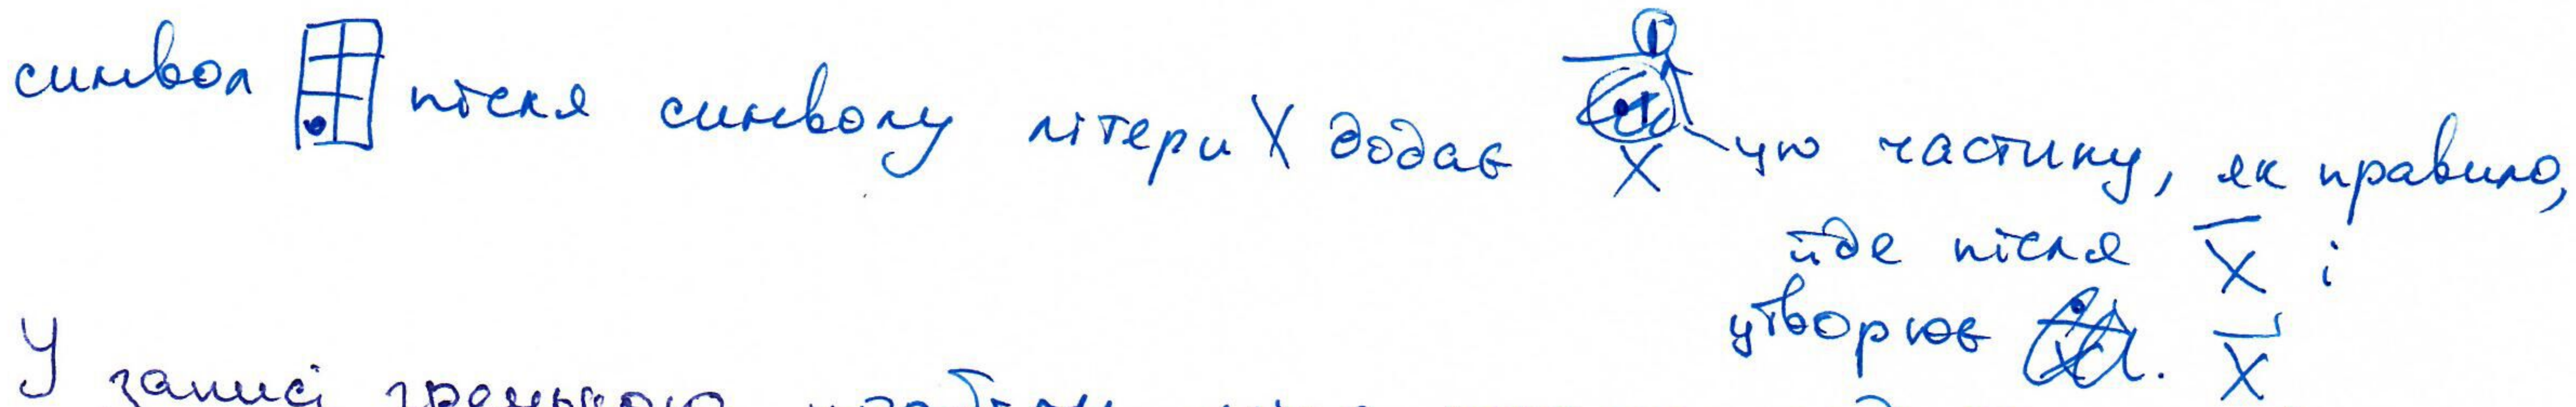 символ після символу літери X додає X цю частину, як правило,
йде після X̅ і
утворює X̅
У записі